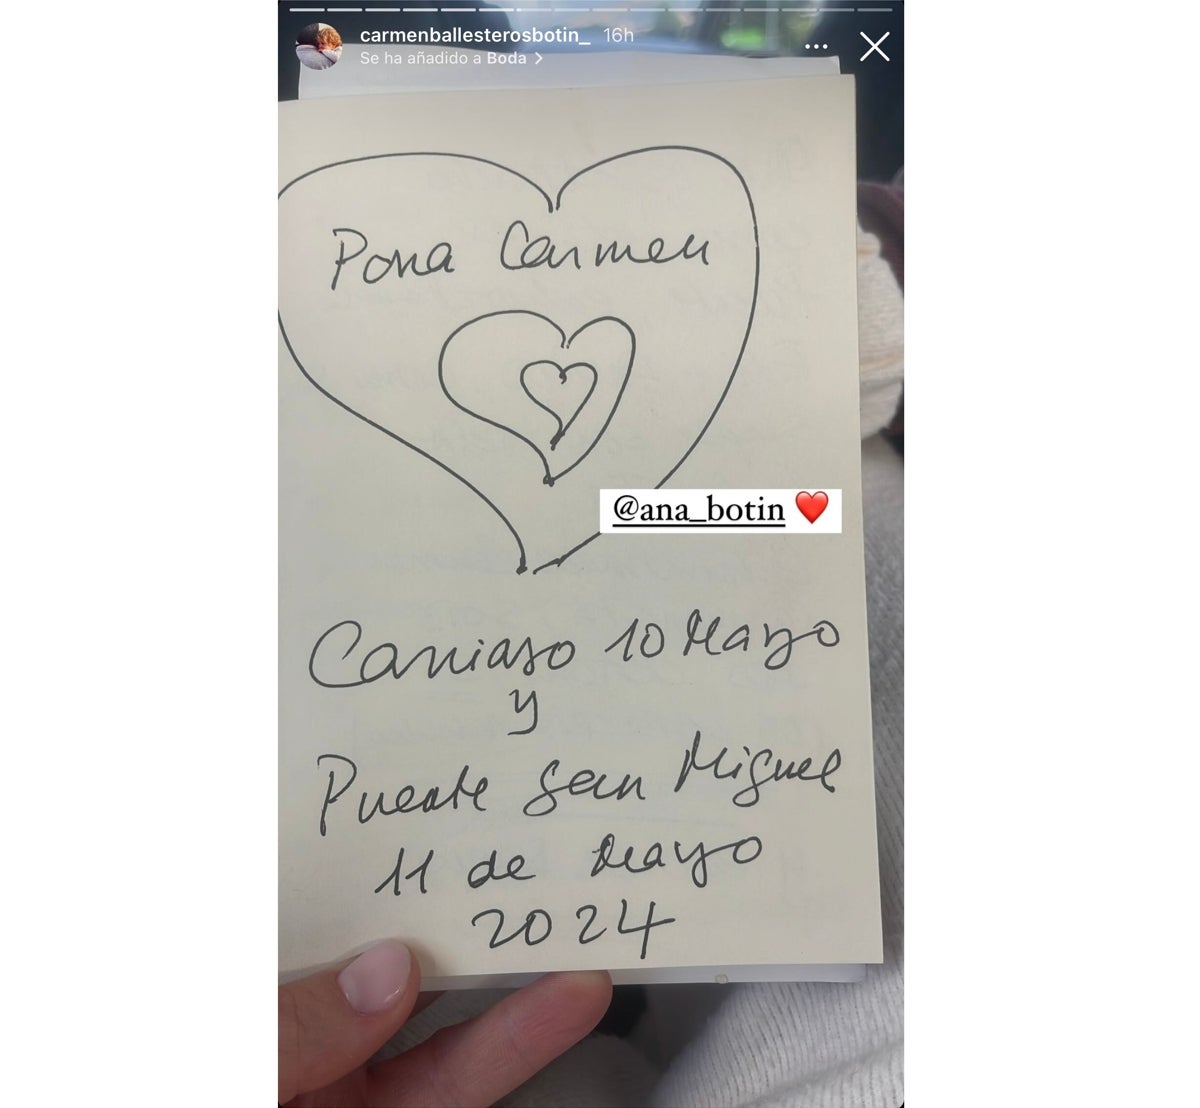 carmenballesterosbotin_ 16h
Se ha añadido a Boda >
Para Carmen
@ana_botin ❤️
10 Mayo
y
Puente San Miguel
11 de Mayo
2024